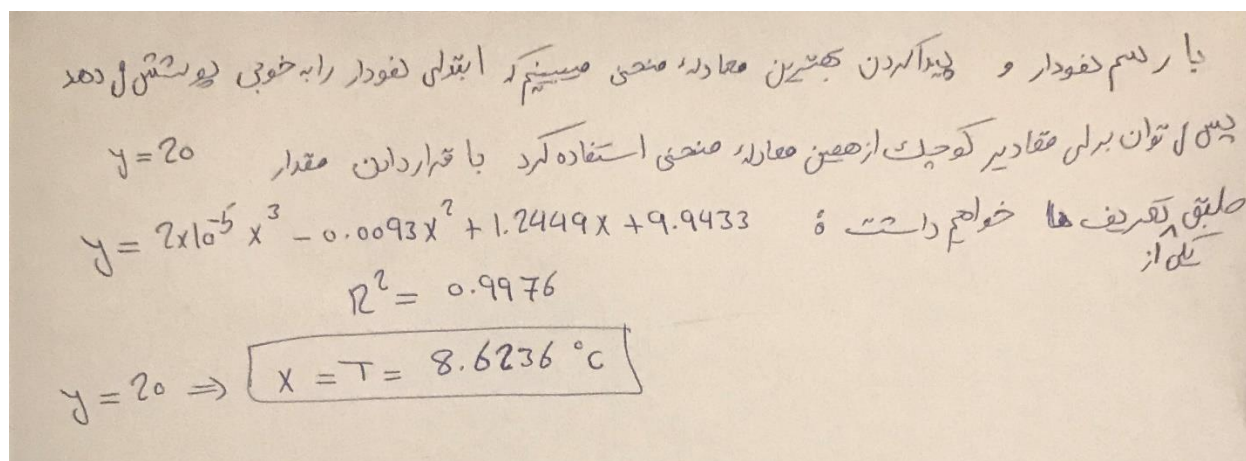 با رسم نمودار و پیدا کردن بهترین معادله منحنی میبینیم که ابتدای نمودار را به خوبی پوشش می دهد
پس می توان برای مقادیر کوچک از همین معادله منحنی استفاده کرد با قرار دادن مقدار y = 20
طبق یکی از تعریف ها خواهیم داشت :
y = 2x10^-5 x^3 - 0.0093x^2 + 1.2449x + 9.9433
R^2 = 0.9976
y = 20 ⇒ x = T = 8.6236 °C